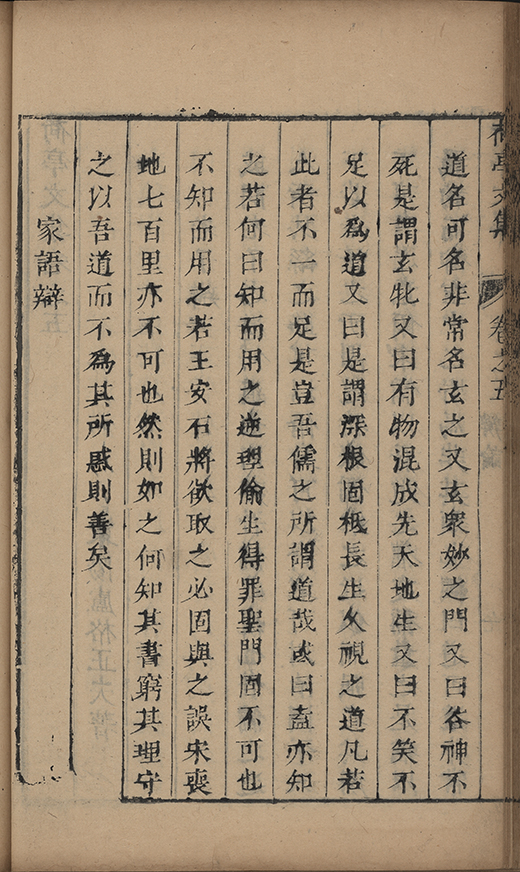 荷亭文集 卷之五
道名可名非常名玄之又玄衆妙之門又曰谷神不
死是謂玄牝又曰有物混成先天地生又曰不笑不
足以爲道又曰是謂深根固柢長生久視之道凡若
此者不一而足是豈吾儒之所謂道哉或曰盍亦知
之若何曰知而用之逆理偷生得罪聖門固不可也
不知而用之若王安石將欲取之必固與之誤宋喪
地七百里亦不可也然則如之何知其書窮其理守
之以吾道而不爲其所惑則善矣
家語辯